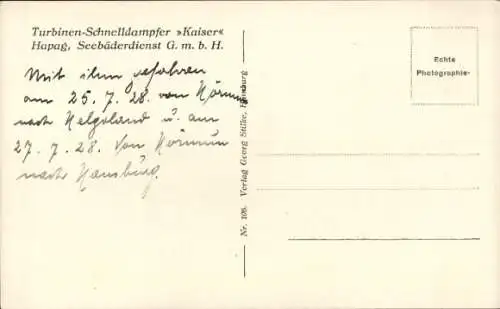 Turbinen-Schnelldampfer »Kaiser«
Hapag, Seebäderdienst G. m. b. H.
Mit ihm gefahren
am 25. 7. 28. von Hörnum
nach Helgoland u. am
27. 7. 28. von Hörnum
nach Hamburg.
Nr. 108. Verlag Georg Stilke, Hamburg
Echte
Photographie